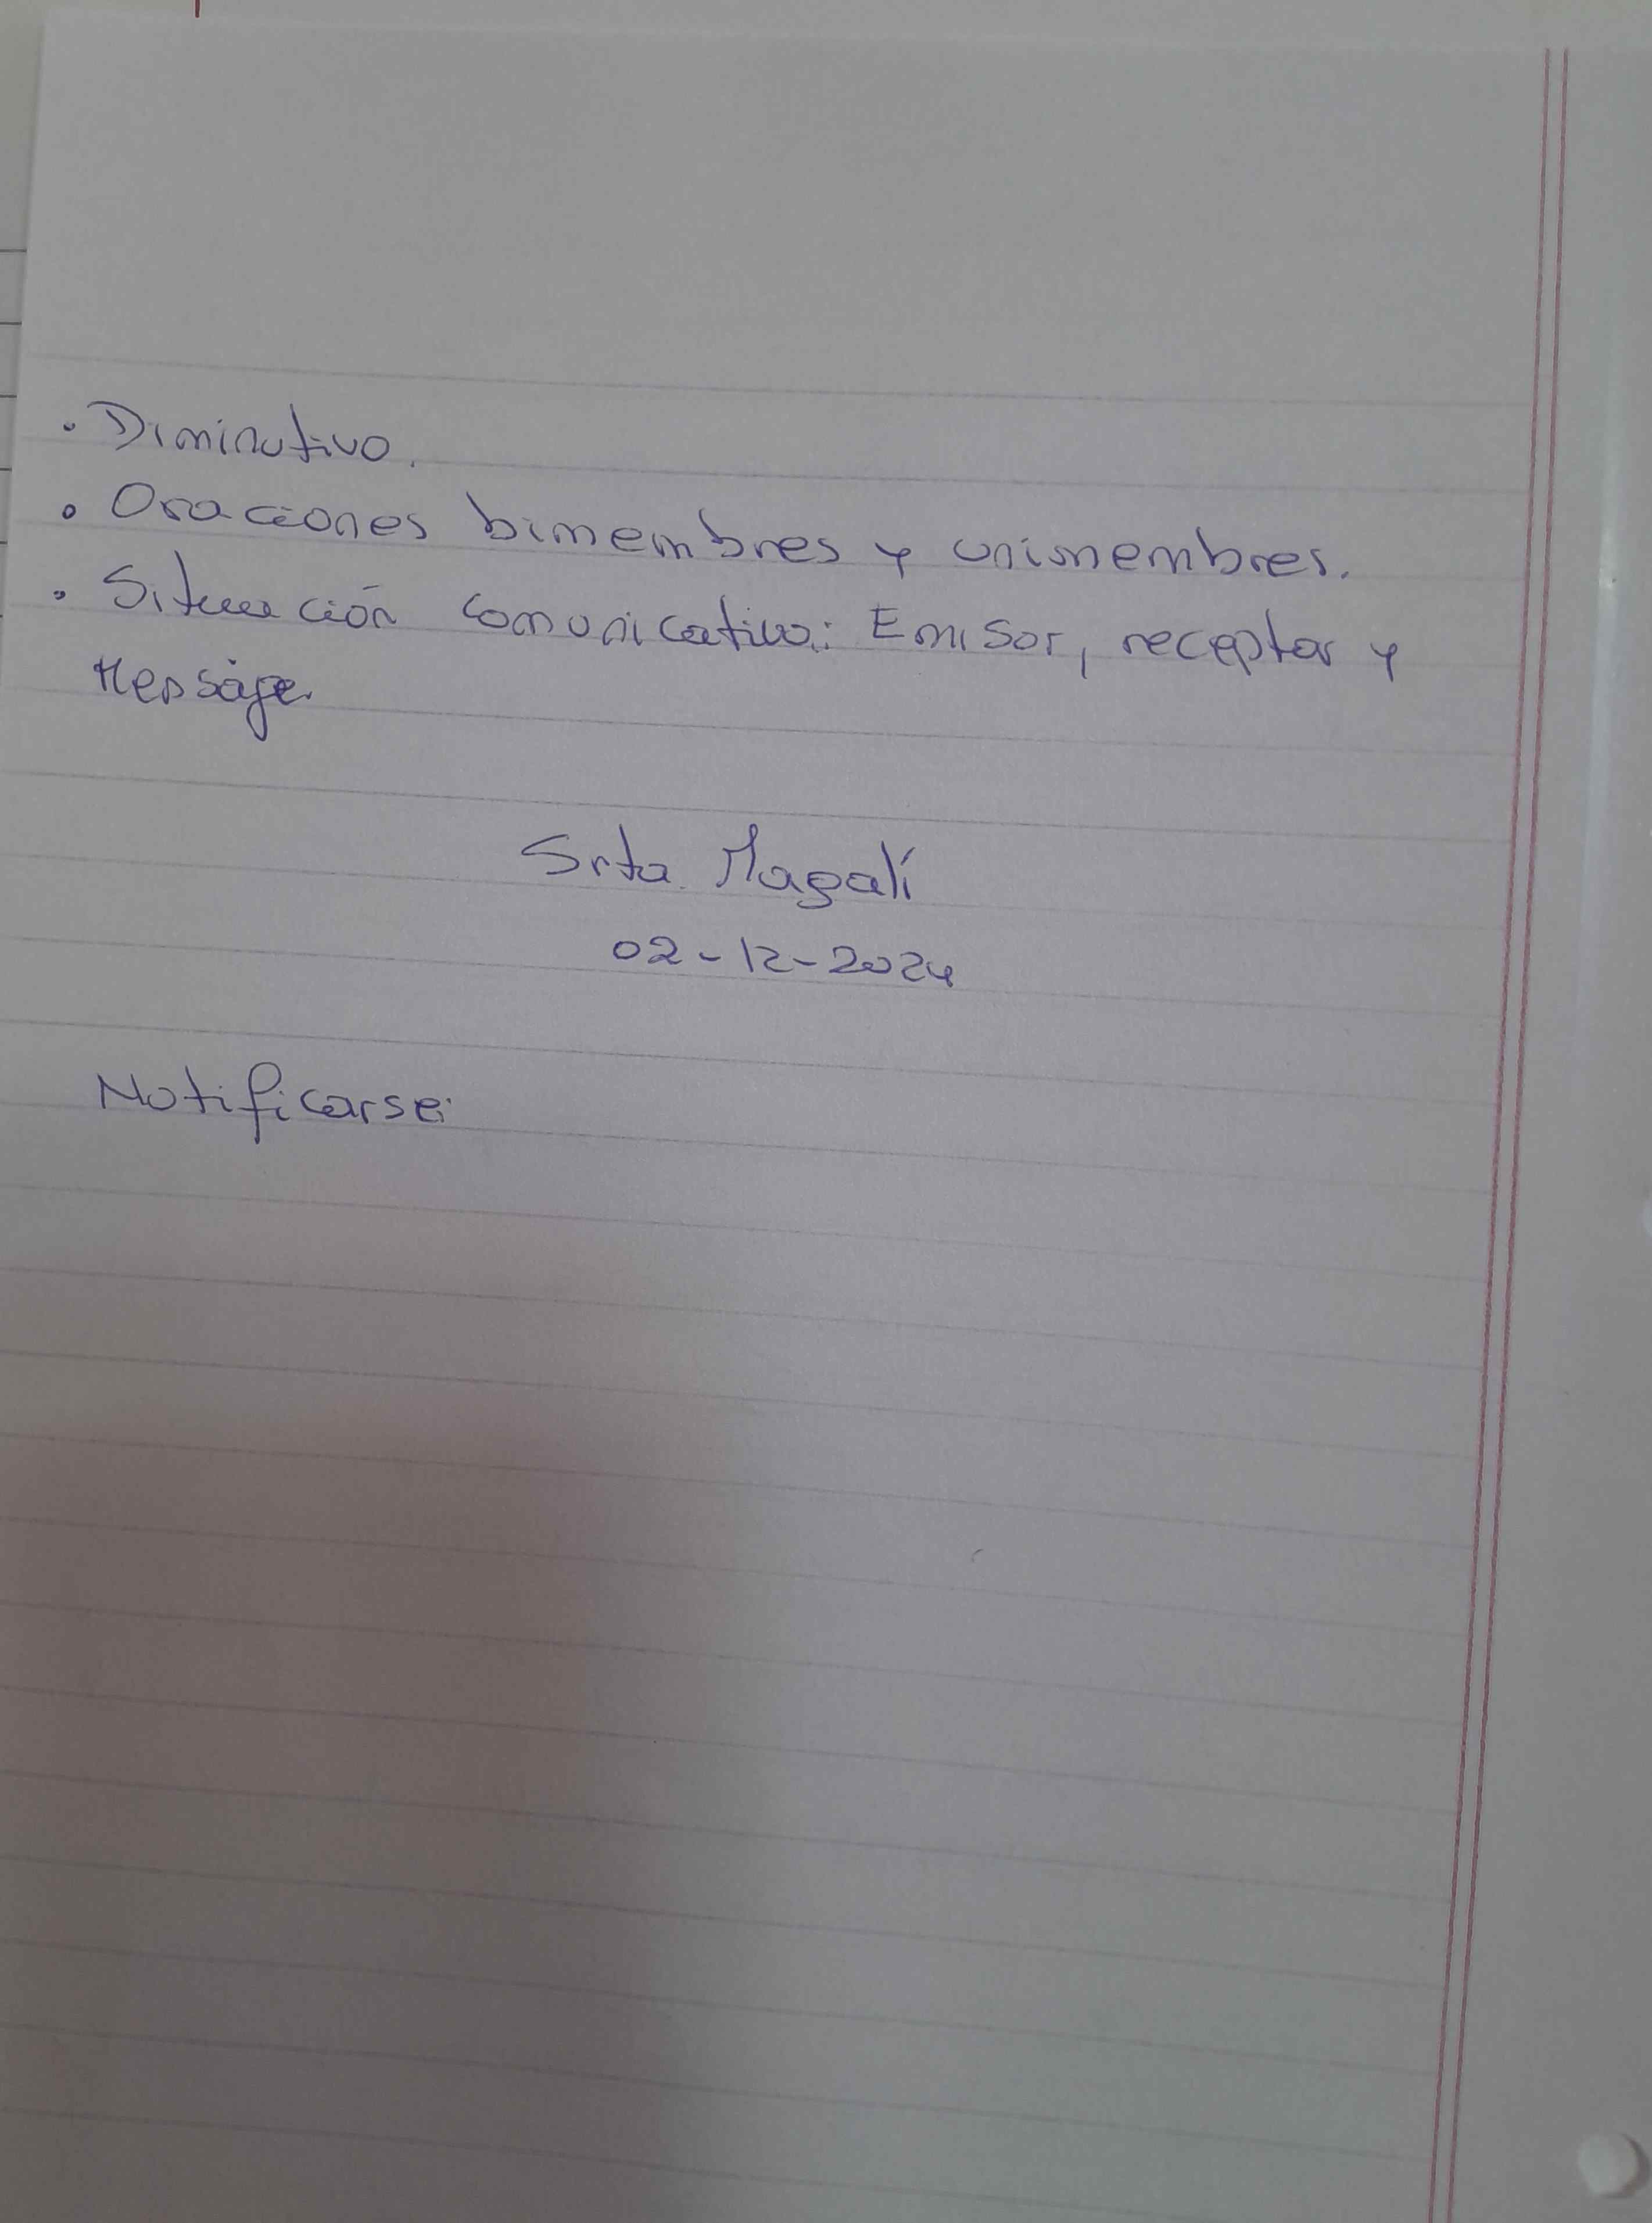 . Diminutivo.
. Oraciones bimembres y unimembres.
. Situación comunicativa: Emisor, receptor y
Mensaje.
Srta. Magalí
02-12-2024
Notificarse: